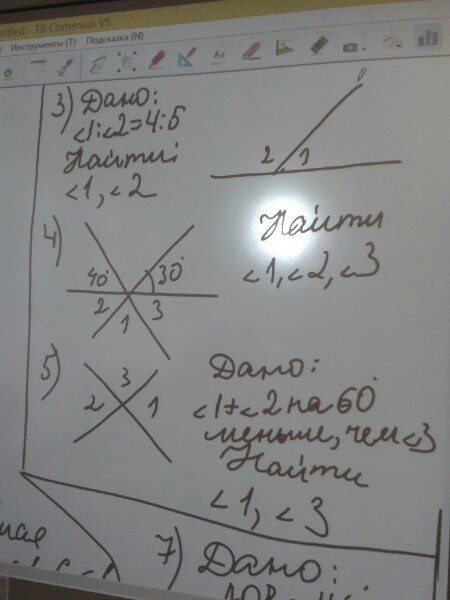 ntitled - TB Comenius V5
Инструменты (T) Подсказка (N)
3) Дано:
<1:<2=4:5
Найти:
<1, <2
2 1
4)
40° 30°
2 1 3
Найти
<1, <2, <3
5)
3
2 1
Дано:
<1+<2 на 60°
меньше, чем <3
Найти
<1, <3
7) Дано: